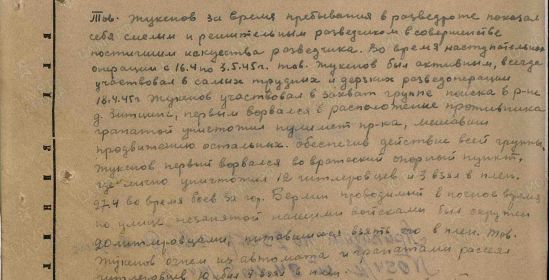 Тов. Жукепов за время пребывания в разведроте показал
себя смелым и решительным разведчиком в совершенстве
постигшим искусства разведчика. Во время наступательной
операции с 16.4 по 3.5.45г. тов. Жукепов был активным, всегда
участвовал в самых трудных и дерзких разведоперации
18.4.45г Жукепов участвовал в захват группе поиска в р-не
д. первым ворвался в расположение противника
гранатой уничтожил пулемет пр-ка, мешавший
продвижению остальных. обеспечив действие всей группы,
Жукепов первый ворвался во вражеский опорный пункт,
где лично уничтожил 12 гитлеровцев и 3 взял в плен.
27.4 во время боев за гор. Берлин в поиске взвод
по улице незанятой нашими войсками был окружен
20 гитлеровцами, пытавшихся взять его в плен. Тов.
Жукепов огнем из автомата и гранатами рассеял
гитлеровцев, 10 убил взял в плен.